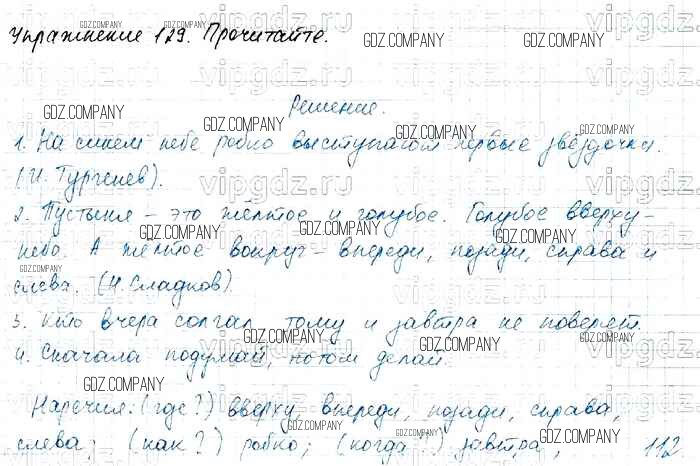 Упражнение 129. Прочитайте.
Решение.
1. На синем небе робко выступают первые звёздочки.
(И. Тургенев).
2. Пустыня – это жёлтое и голубое. Голубое вверху –
небо. А жёлтое вокруг – впереди, позади, справа и
слева. (Н. Сладков).
3. Кто вчера солгал, тому и завтра не поверят.
4. Сначала подумай, потом делай.
Наречия: (где?) вверху, впереди, позади, справа,
слева; (как?) робко; (когда ) завтра,
112
GDZ.COMPANY
vipgdz.ru